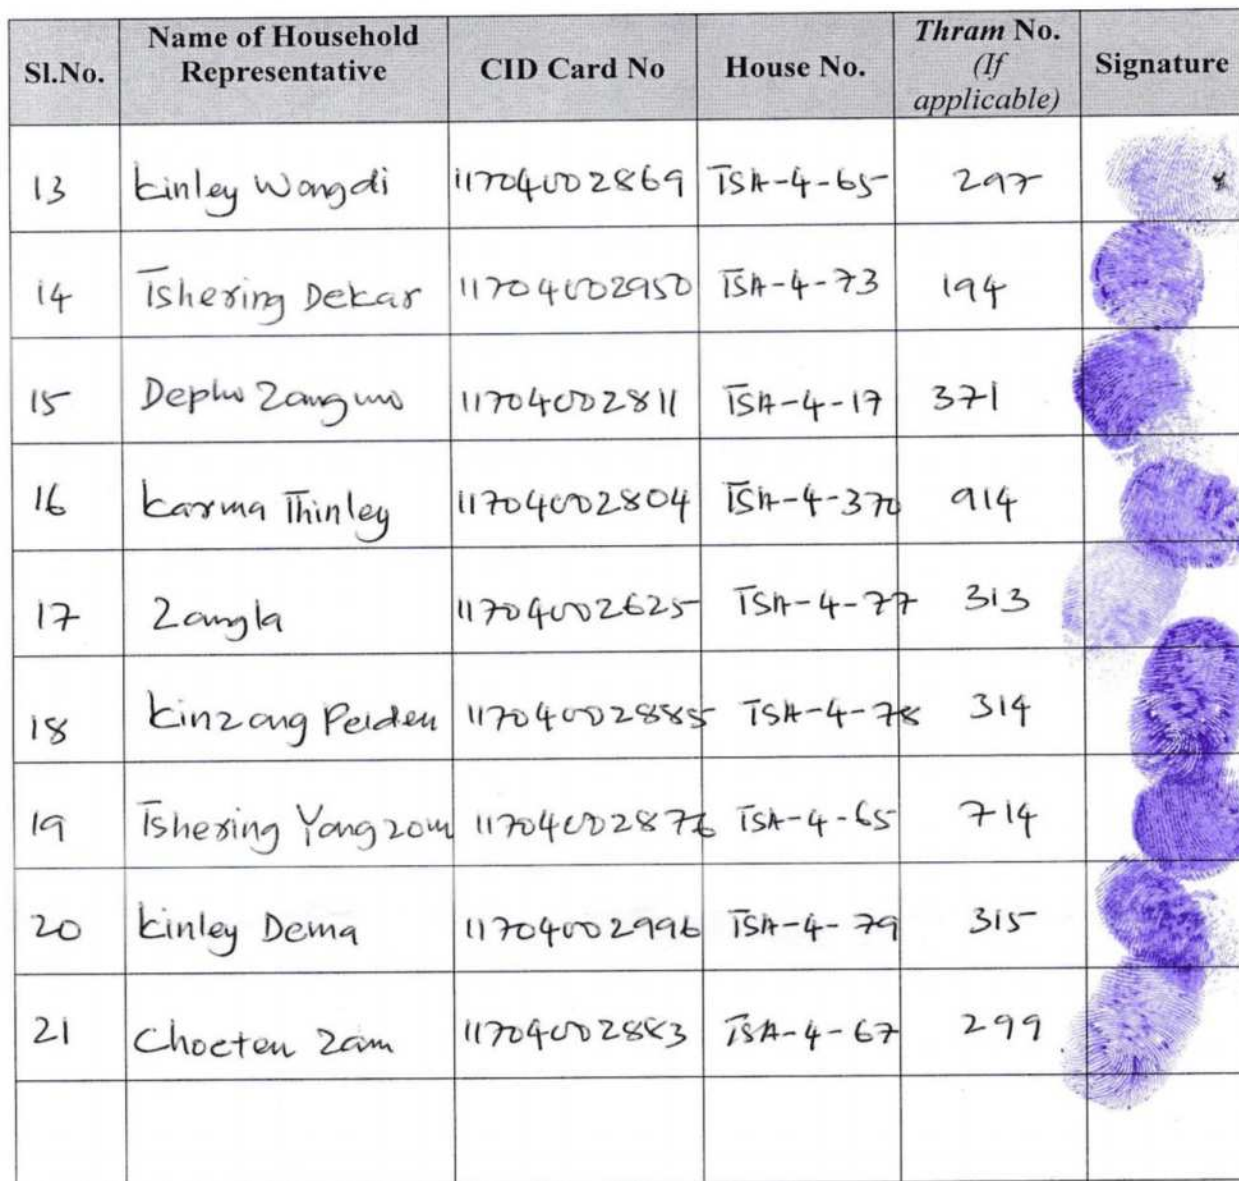 Sl.No. Name of Household Representative CID Card No House No. Thram No. (If applicable) Signature
13 Kinley Wangdi 11704002869 TSA-4-65 297
14 Tshering Dekar 11704002950 TSA-4-73 194
15 Depho Zangmo 11704002811 TSA-4-17 371
16 Karma Thinley 11704002804 TSA-4-370 914
17 Zangla 11704002625 TSA-4-77 313
18 Kinzang Pelden 11704002885 TSA-4-78 314
19 Tshering Yangzom 11704002876 TSA-4-65 714
20 Kinley Dema 11704002996 TSA-4-79 315
21 Choeten Zam 11704002883 TSA-4-67 299